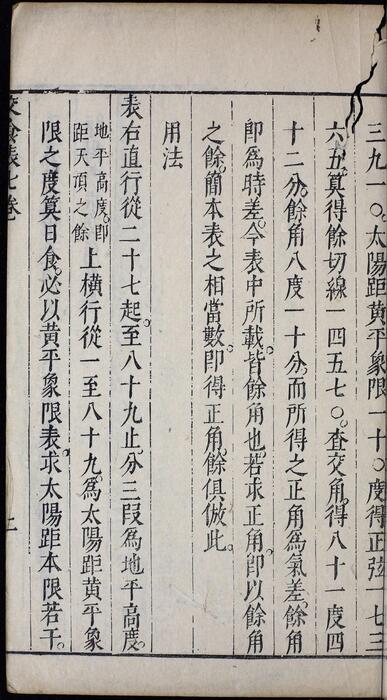 三九一〇太陽距黄平象限一十〇度得正弦一七三
六五算得餘切線一四五七〇查交角得八十一度四
十二分餘角八度一十分而所得之正角為氣差餘角
即為時差今表中所載皆餘角也若求正角即以餘角
之餘簡本表之相當數即得正角餘俱倣此
用法
表右直行從二十七起至八十九止分三叚為地平高度
地平高度即
距天頂之餘
上橫行從一至八十九為太陽距黄平象
限之度算日食必以黄平象限表求太陽距本限若干
交食表七卷
二